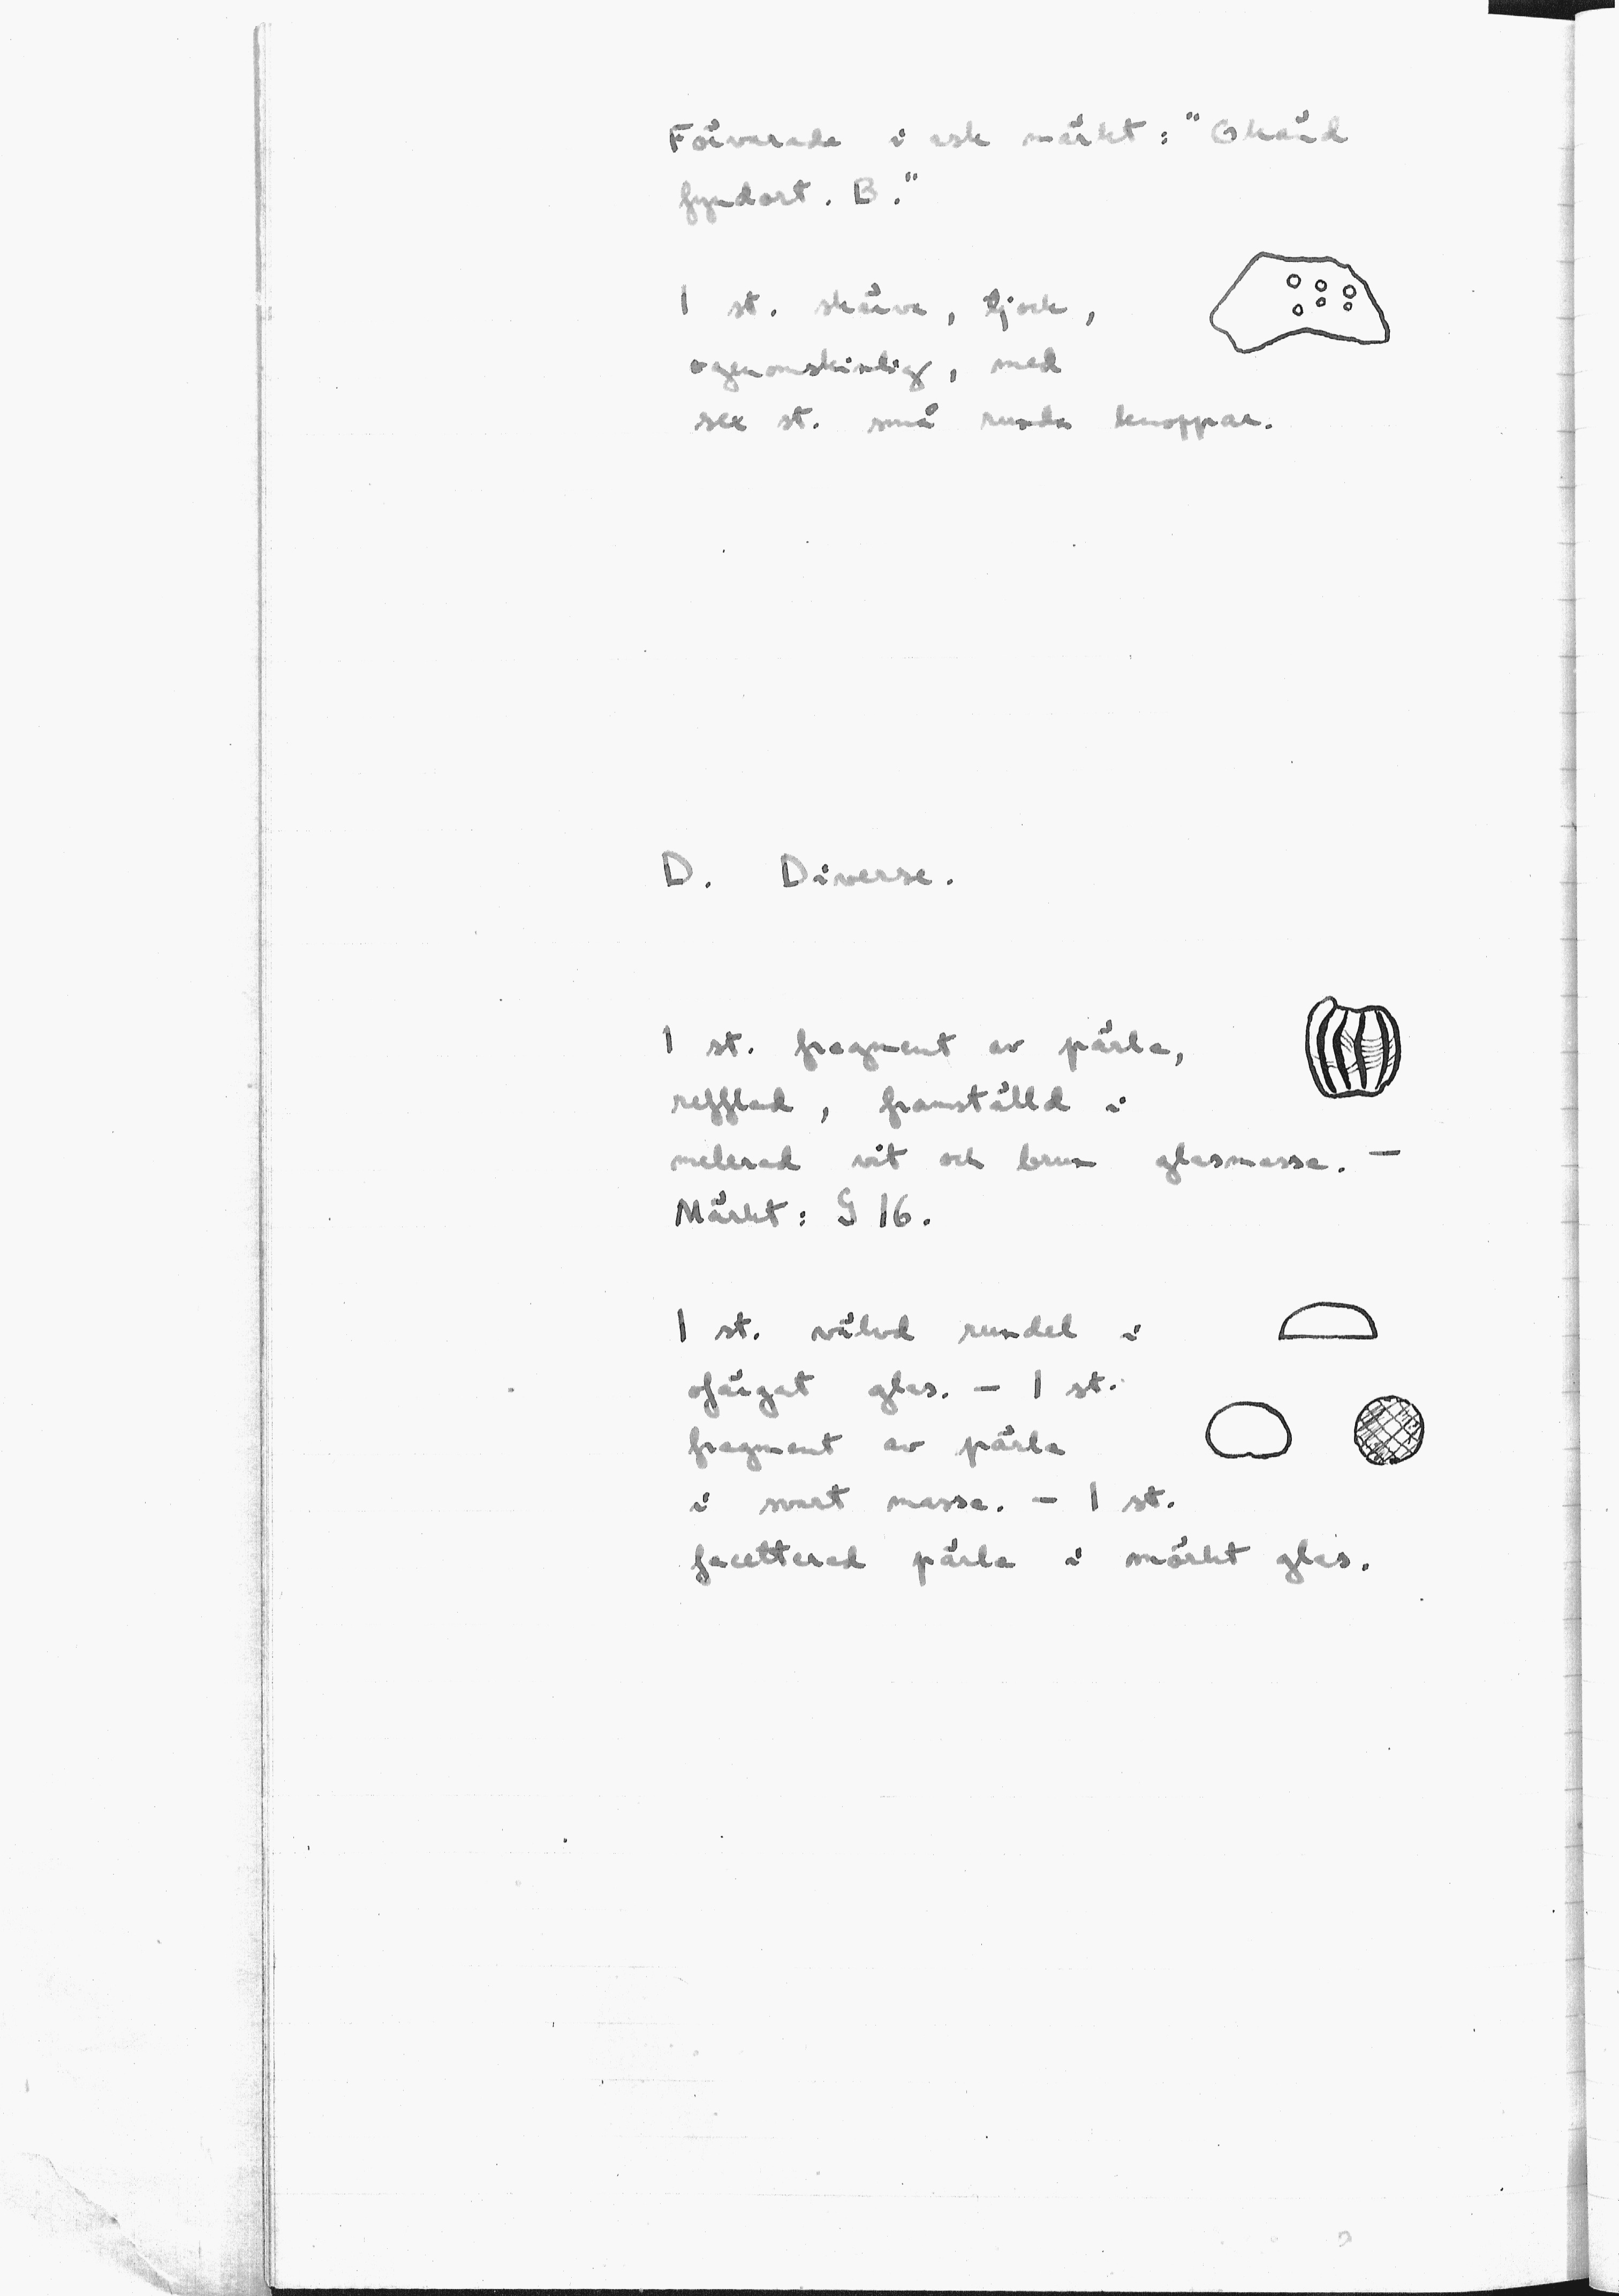 Förvarade i ask märkt: "Okänd
fyndort. B."
1 st. skärva, tjock,
ogenomskinlig, med
sex st. små runda knoppar.
D. Diverse.
1 st. fragment av pärla,
refflad, framställd i
melerad vit och brun glasmassa. —
Märkt: G 16.
1 st. välvd rundel i
ofärgat glas. — 1 st.
fragment av pärla
i svart massa. — 1 st.
facetterad pärla i mörkt glas.